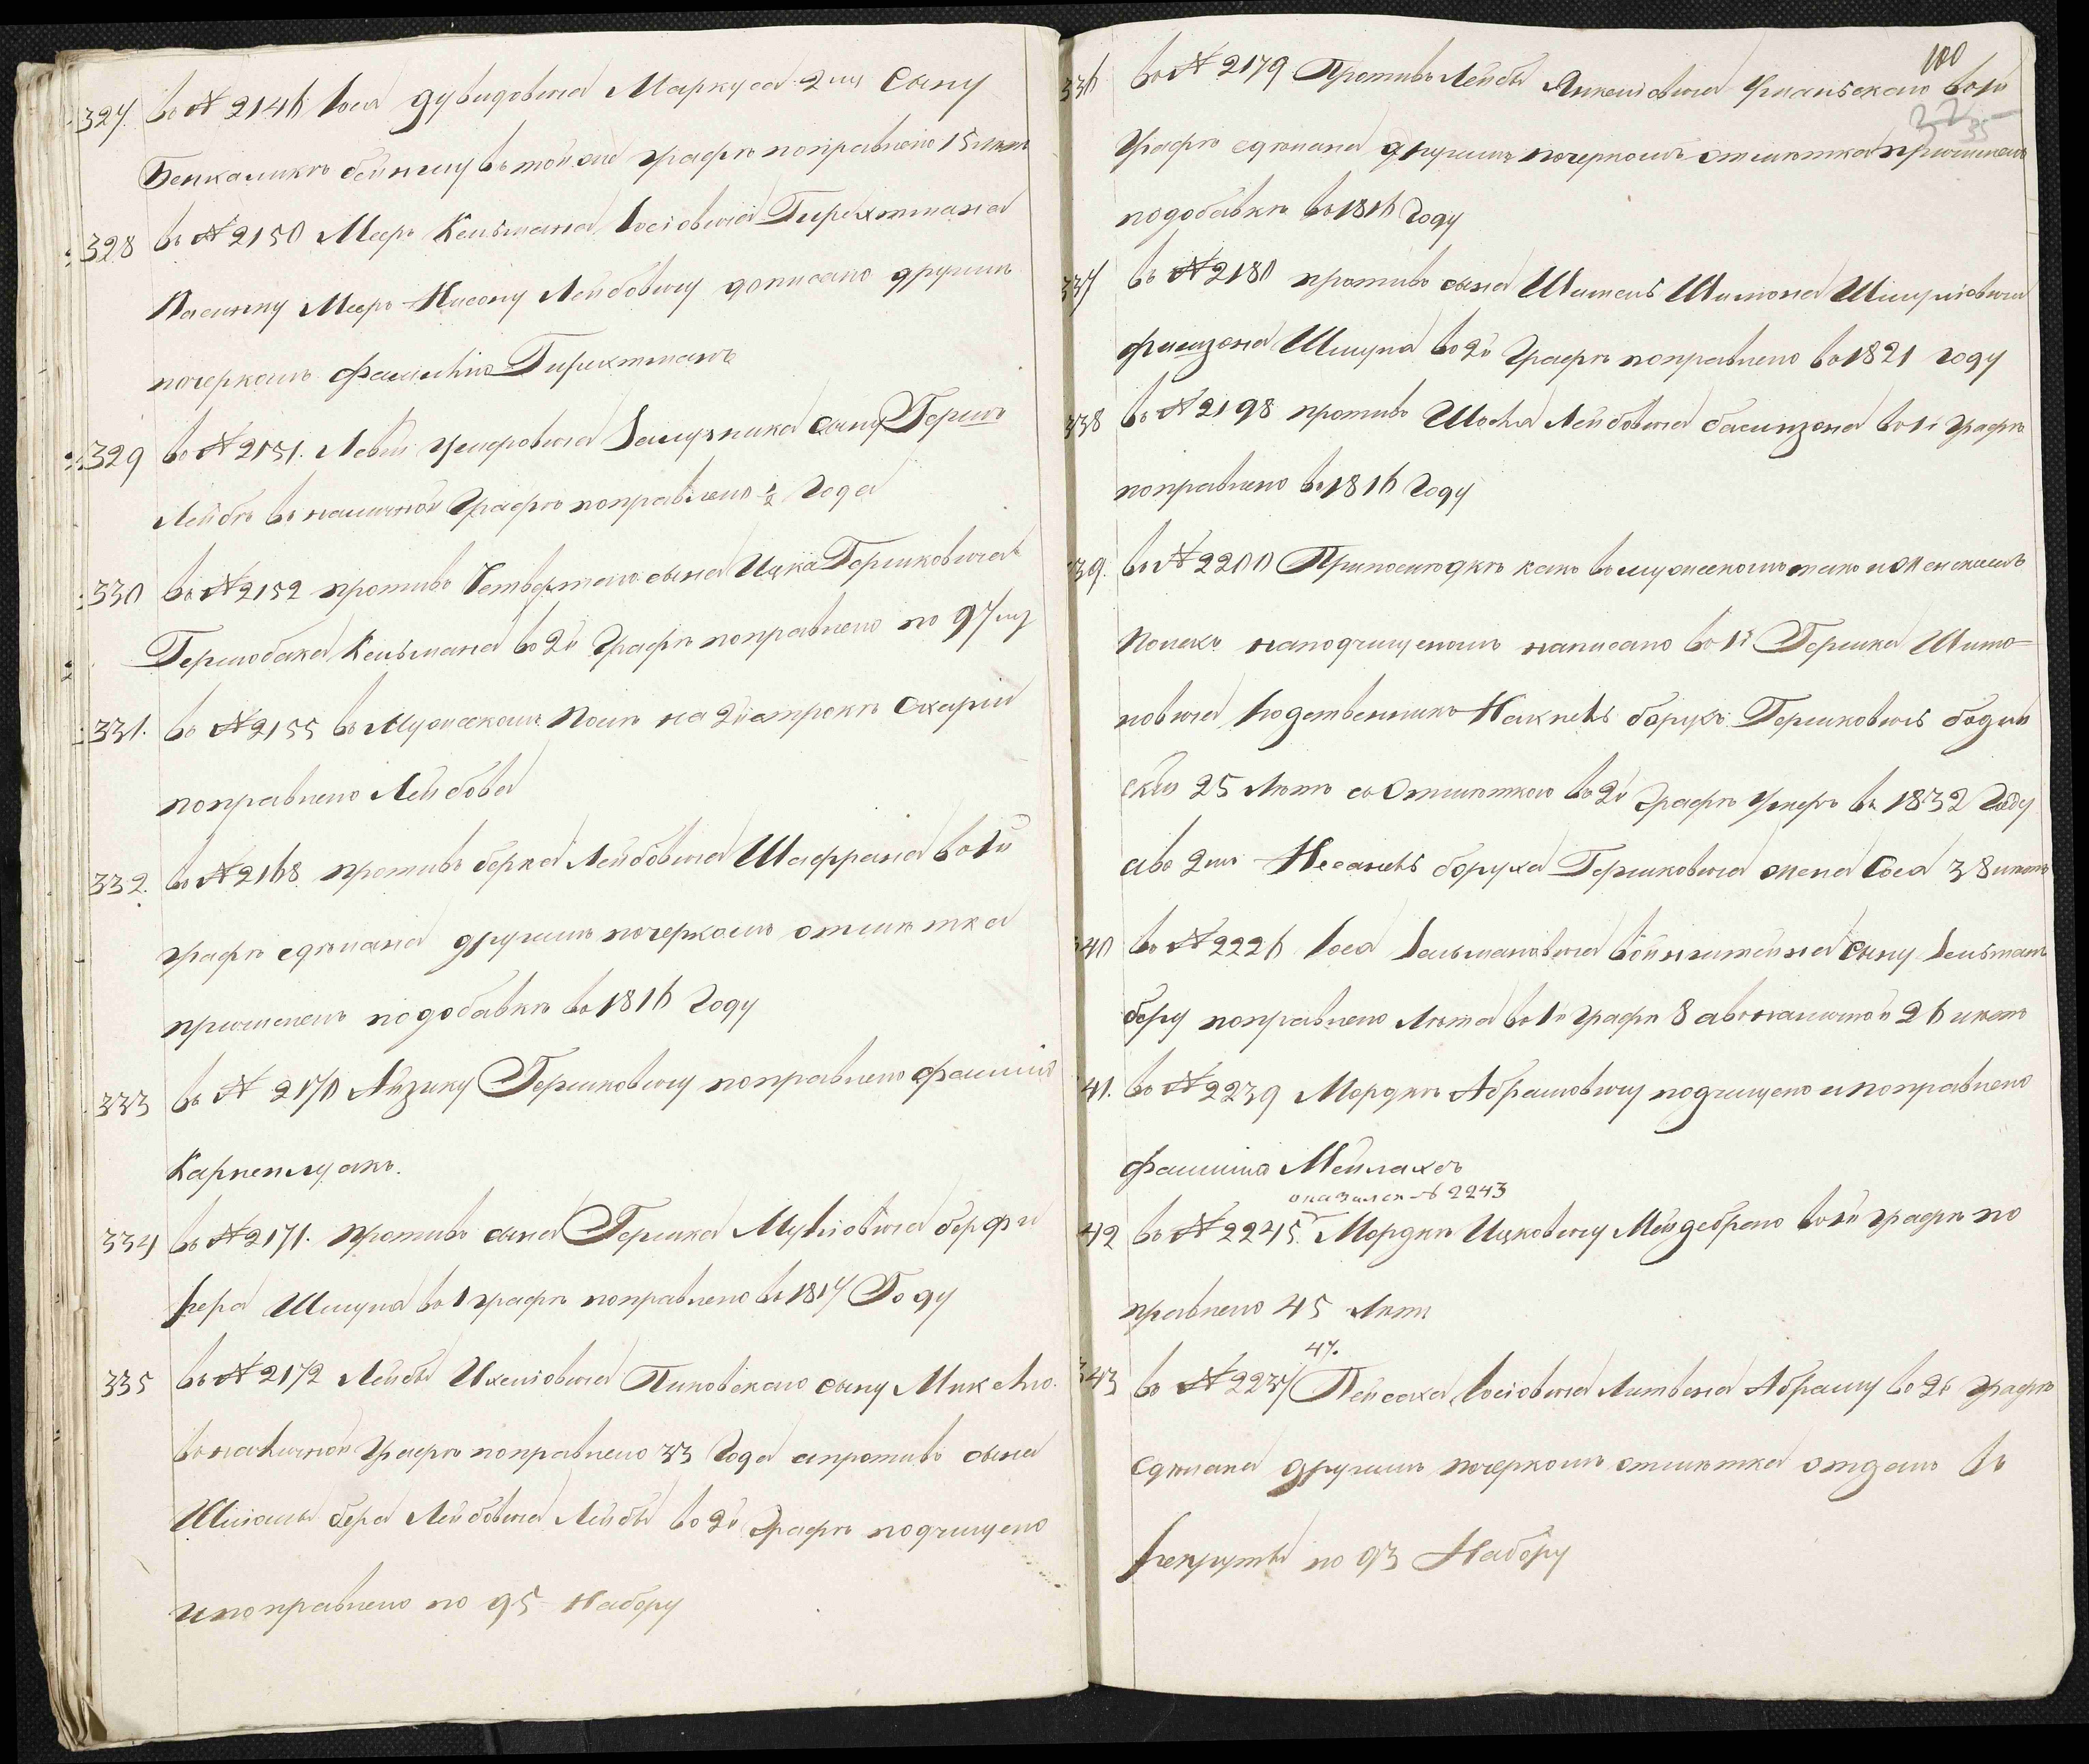 327. въ № 2146 Іося Дувидовича Маркуса 2му сыну
Бенкамину в той же графѣ поправлено 15 лѣтъ
328 въ № 2150 Меер Кельмана Іосіовича Гирехтмана
Пасынку Меер Нисону Лейбовичу дописано другим
почеркомъ фамилію Гирихтманъ
329 въ № 2151. Левы Умеровича сыну Герш
Лейбѣ въ наличной графѣ поправлено ½ года
330 въ № 2152 противъ Четвертаго сына Ицка Гершковича
Кельмана во 2й графѣ поправлено по 97му
331. въ № 2155 въ Мужескомъ Полѣ на 2й строкѣ
поправлено Лейбова
332. въ № 2168 противъ Берка Лейбовича Шафрана во 1й
графѣ сдѣлана другимъ почеркомъ отмѣтка
причисленъ по добавкѣ въ 1816 году
333 въ № 2170 Айзику Гершковичу поправлено фамилія

334 въ № 2171. противъ сына Гершка Берфи
кера Шмуля въ 1 графѣ поправлено въ 1817 Году
335 въ № 2172 Лейбы Ихеліовича Пиковскаго сыну Микелю
въ наличной графѣ поправлено 33 года а противъ сына
Бера Лейбовича Лейбы во 2й графѣ подчищено
и поправлено по 95 Набору
100
35
336 въ № 2179 Противъ Лейбы Янкеліовича Уманьскаго во 1й
графѣ сдѣлана другимъ почеркомъ отмѣтка причисленъ
по добавкѣ въ 1816 году
337 въ № 2180 противъ сына Шимона Шмуліовича
Шмуля во 2й графѣ поправлено въ 1821 году
338 въ № 2198 противъ Лейбовича во 1й графѣ
поправлено въ 1816 году
339. въ № 2200 какъ въ мужескомъ такъ и женскомъ
Полахъ на подчищеномъ написано въ 1й Гершка Шимо=
новича родственникъ Борухъ Гершковичъ
скій 25 лѣтъ съ отмѣткою во 2й графѣ умеръ въ 1832 году
а во 2мъ Боруха Гершковича жена Сося 38 лѣтъ
340 въ № 2226 Іося Зальмановича Войнштейна сыну Зельман
Беру поправлено лѣта во 1й графѣ 8 а въ наличной 26 лѣтъ
341. въ № 2239 Мордкѣ Абрамовичу подчищено и поправлено
фамилія Мейлахсъ
оказался № 2243
342 въ № 2245 Мордкѣ Ицковичу во 1й графѣ по
правлено 45 лѣтъ
47.
343 въ № 2237 Пейсаха Іосіовича Литвена Абраму во 2й графѣ
сдѣлана другимъ почеркомъ отмѣтка отданъ въ
рекруты по 93 Набору